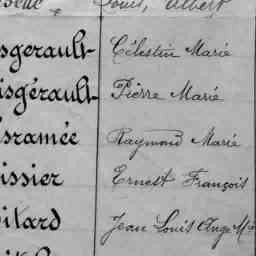 Louis, Albert
sgerault Célestin Marie
isgérault Pierre Marie
sramée Raymond Marie
issier Ernest François
itard Jean Louis Ange M